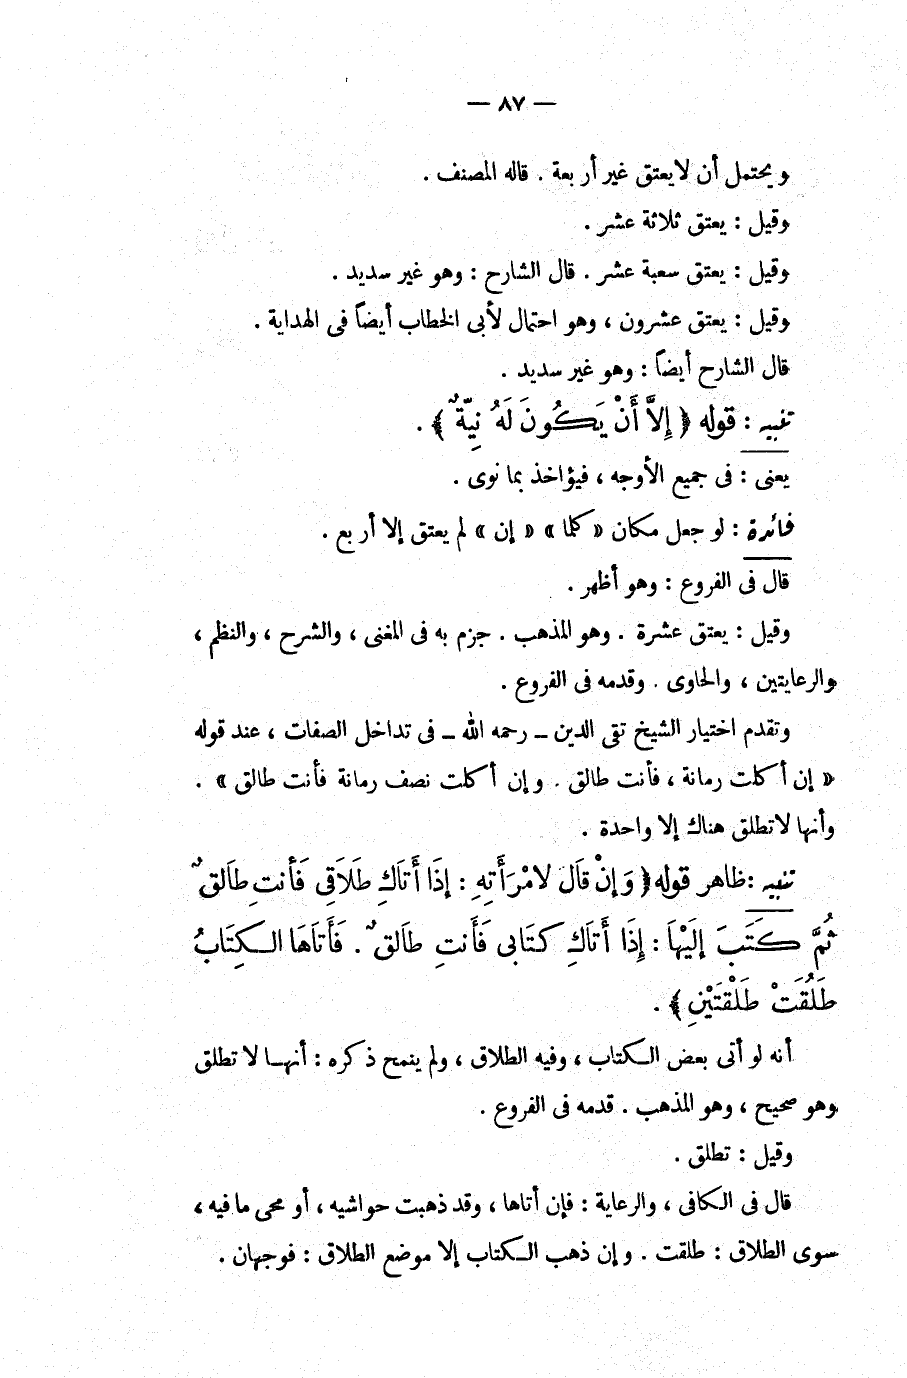 — ٨٧ —
ويحتمل أن لا يعتق غير أربعة . قاله المصنف .
وقيل : يعتق ثلاثة عشر .
وقيل : يعتق سعبة عشر . قال الشارح : وهو غير سديد .
وقيل : يعتق عشرون ، وهو احتمال لأبى الخطاب أيضاً فى الهداية .
قال الشارح أيضاً : وهو غير سديد .
تنبيه : قوله ﴿ إِلاَّ أَنْ يَكُونَ لَهُ نِيَّةٌ ﴾ .
يعنى : فى جميع الأوجه ، فيؤاخذ بما نوى .
فائدة : لو جعل مكان « كلما » « إن » لم يعتق إلا أربع .
قال فى الفروع : وهو أظهر .
وقيل : يعتق عشرة . وهو المذهب . جزم به فى المغنى ، والشرح ، والنظم ،
والرعايتين ، والحاوى . وقدمه فى الفروع .
وتقدم اختيار الشيخ تقى الدين – رحمه الله – فى تداخل الصفات ، عند قوله
« إن أكلت رمانة ، فأنت طالق . وإن أكلت نصف رمانة فأنت طالق » .
وأنها لا تطلق هناك إلا واحدة .
تنبيه : ظاهر قوله ﴿ وَإِنْ قَالَ لامْرَأَتِهِ : إِذَا أَتَاكِ طَلَاقِى فَأَنتِ طَالقٌ
ثُمَّ كَتَبَ إِلَيْهَا : إِذَا أَتَاكِ كتَابى فَأَنتِ طَالقٌ . فَأَتَاهَا الكِتَابُ
طَلُقَتْ طَلْقَتَيْنِ ﴾ .
أنه لو أتى بعض الكتاب ، وفيه الطلاق ، ولم ينمح ذكره : أنها لا تطلق
وهو صحيح ، وهو المذهب . قدمه فى الفروع .
وقيل : تطلق .
قال فى الكافى ، والرعاية : فإن أتاها ، وقد ذهبت حواشيه ، أو محى ما فيه ،
سوى الطلاق : طلقت . وإن ذهب الكتاب إلا موضع الطلاق : فوجهان .